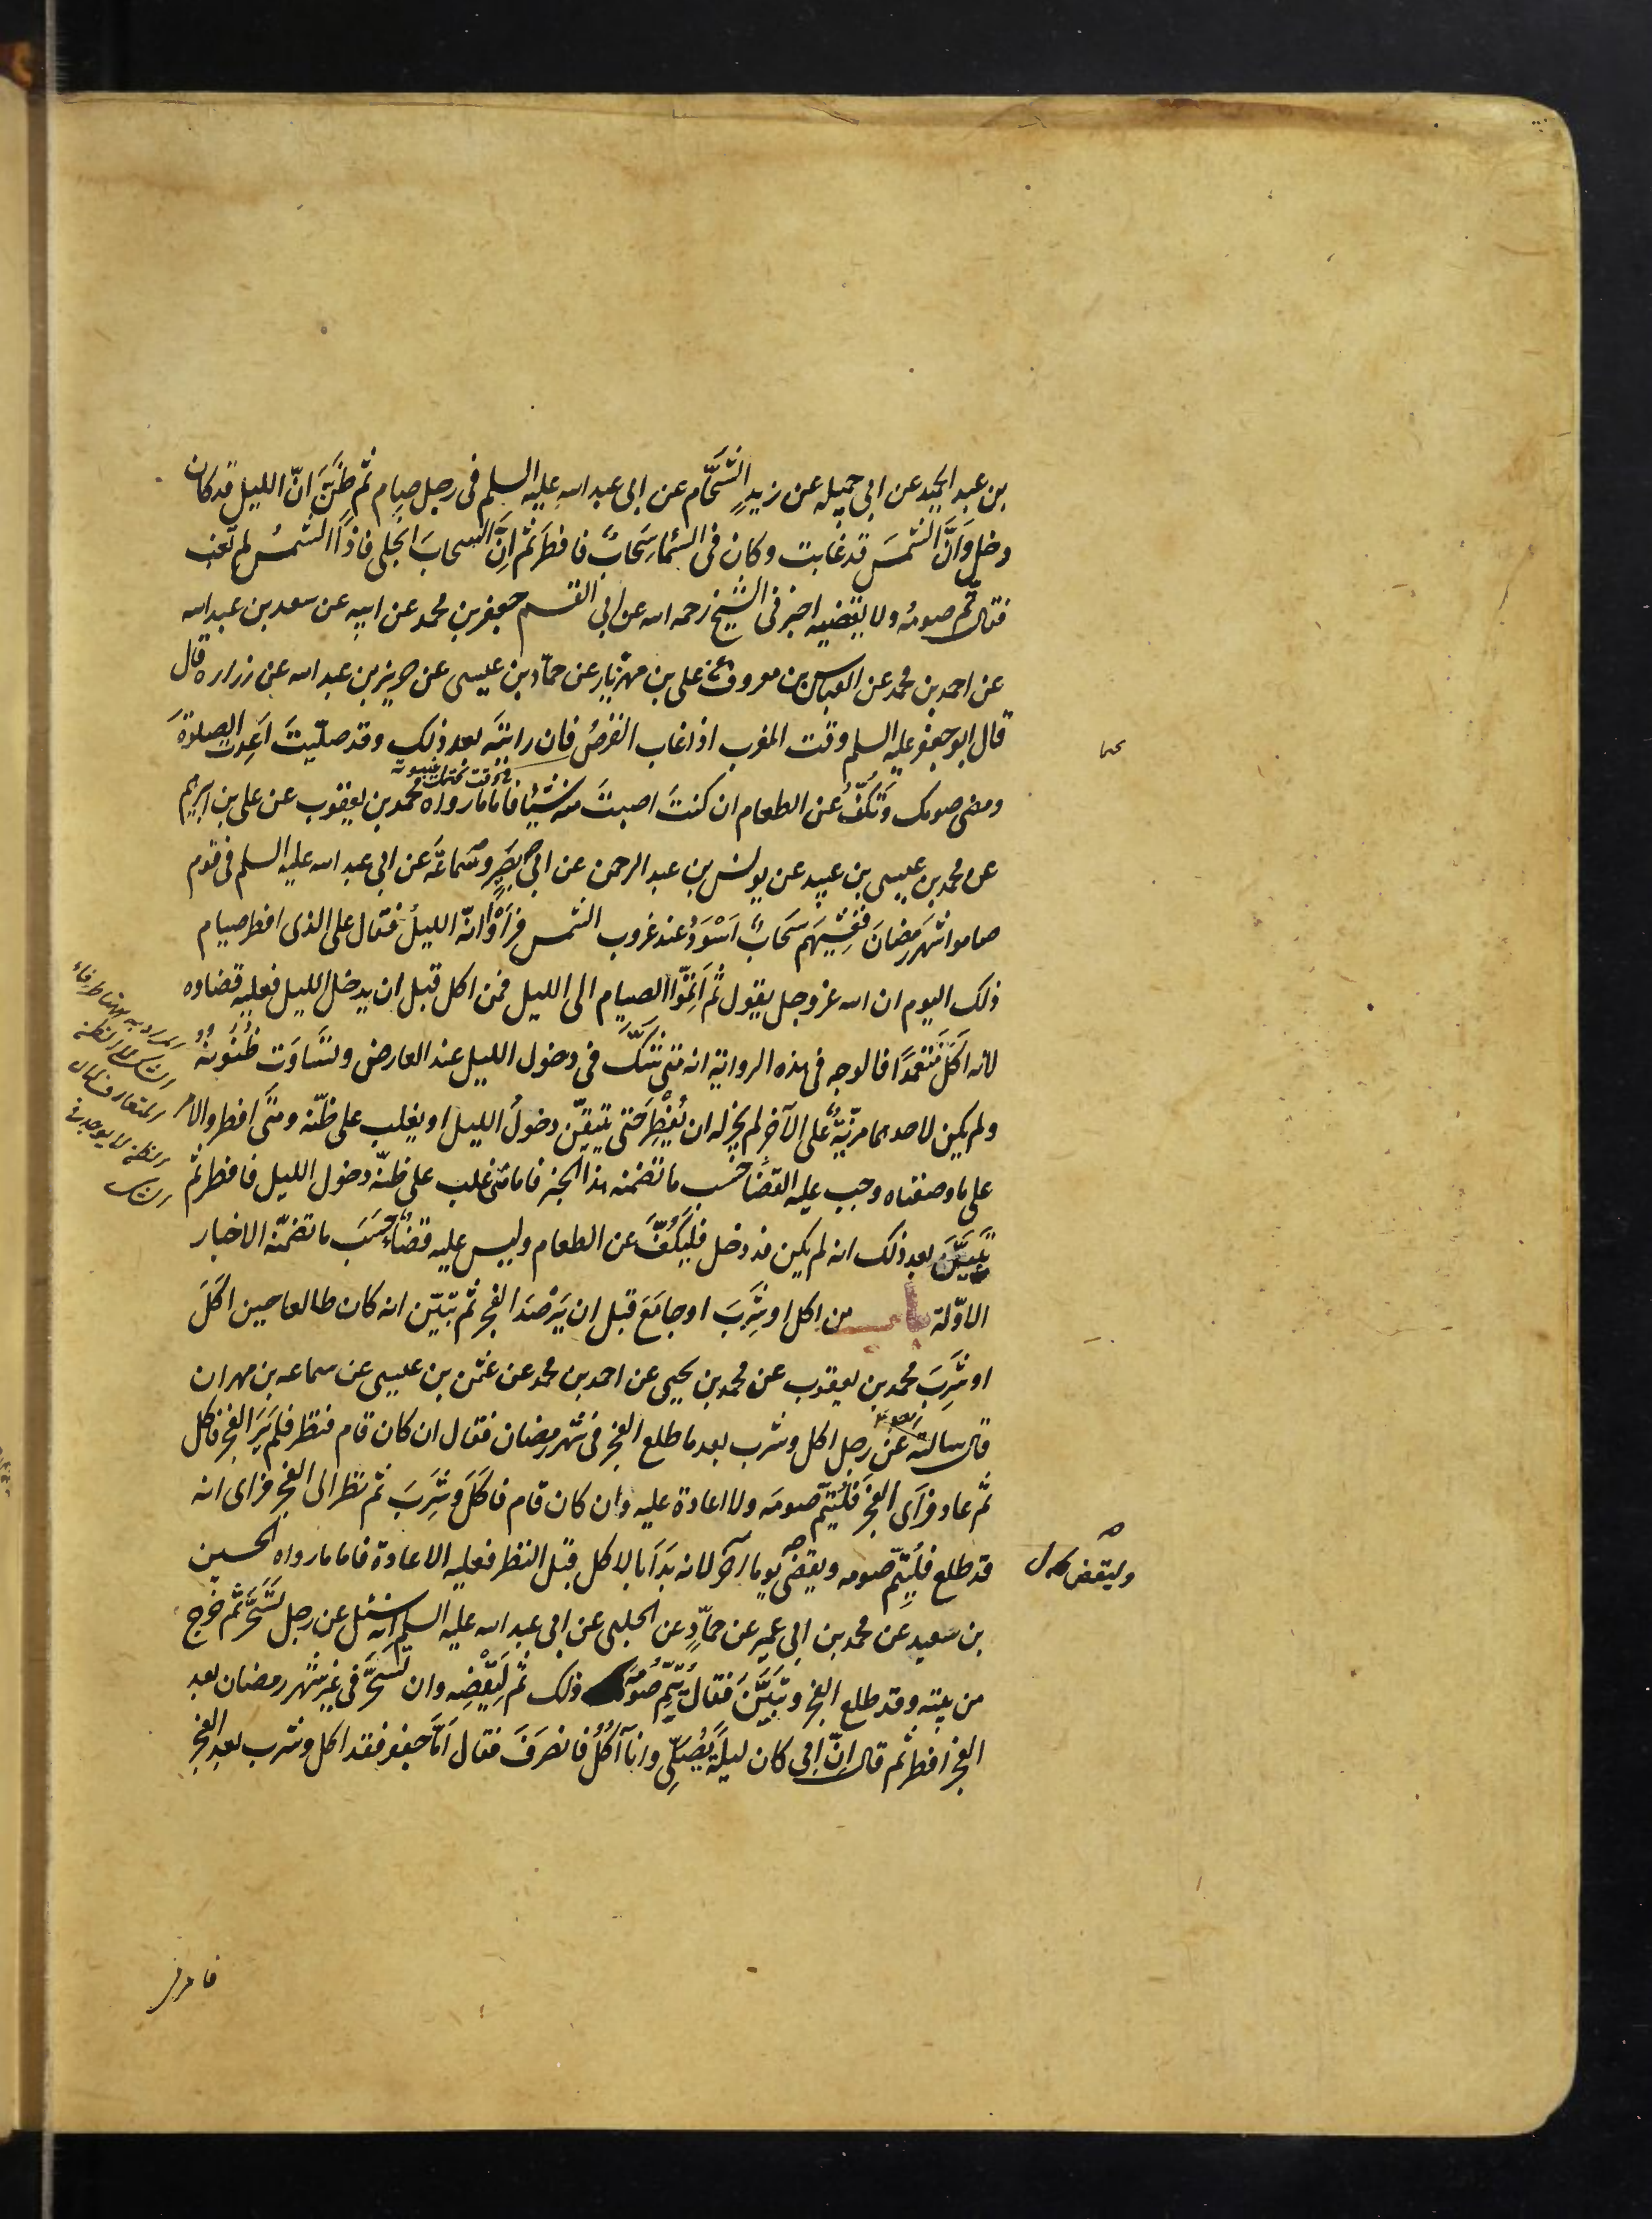 بن عبد الحميد عن ابي جميله عن زيدٍ الشَّحَّام عن ابى عبد الله عليه السلم فى رجل صام ثم ظَنَّ انّ الليل قد كان
دخل وَاَنَّ الشمسَ قد غابت وكان فى السّماء سَحَابٌ فافطَرَ ثم اِنَّ السحابَ انجلى فاذا الشمسُ لم تغب
فقال تم صومُه ولا يقضيه اخبرنى الشيخ رحمه الله عن ابى القسم جعفر بن محمد عن ابيه عن سعد بن عبد الله
عن احمد بن محمد عن العباس بن معروف عن على بن مهزيار عن حمّاد بن عيسى عن حريز بن عبد الله عن زراره قال
قال ابو جعفر عليه السلم وقت المغرب اذا غاب القرصُ فان رايتَه بعد ذلك وقد صلّيتَ اَعِدت الصلوةَ
ومضى صومك وَتَكُفُّ عن الطعام ان كنتَ اصبتَ منه شيئا فاما ما رواه محمد بن يعقوب عن على بن ابرهيم
عن محمد بن عيسى بن عبيد عن يونس بن عبد الرحمن عن ابى بصَيرٍ وسَماعَةَ عن ابى عبد الله عليه السلم فى قوم
صاموا شهر رمضانَ فَغَشِيَهم سَحَابٌ اَسْوَدُ عند غروب الشمس فراَوْا انّه الليلُ فقال على الذى افطر صيام
ذلك اليوم ان الله عز وجل يقول ثم اَتِمّوا الصيام الى الليل فمن اكل قبل ان يدخل الليل فعليه قضاؤه
لانه اَكَلَ مُتَعمدًا فالوجه فى هذه الرواية انه متى شَكَّ فى دخول الليل عند العارض وتساوَت ظُنُونهُ
ولم يكن لاحدهما مزيّةٌ على الآخر لم يجز له ان يُفْطِرَ حتى يتيقّن دخولَ الليل او يغلب على ظنّه ومتى افطر والامر
على ما وصفناه وجب عليه القضاء حَسَب ما تضمّنه هذا الخبر فاما متى غلب على ظنّه دخول الليل فافطر ثم
تَبيَّنَ بعد ذلك انه لم يكن قد دخل فليَكُفَّ عن الطعام وليس عليه قضاءٌ حَسَبَ ما تضمّنه الاخبار
الاوّلة باب من اكل او شَرِبَ او جامَعَ قبل ان يَرْصَدَ الفجر ثم تبيّن انه كان طالعا حين اكَلَ
او شَرِبَ محمد بن يعقوب عن محمد بن يحيى عن احمد بن محمد عن عثمن بن عيسى عن سماعه بن مهران
قال سالته عن رجل اكل وشرب بعد ما طلع الفجر فى شهر رمضان فقال ان كان قام فنظر فلم يَرَ الفجر فاكل
ثم عاد فراَى الفجرَ فَليُتِمّ صومَه ولا اعادة عليه وان كان قام فاَكَلَ وَشَرِبَ ثم نظر الى الفجر فراى انه
قد طلع فليُتِمّ صومه ويقضى يوما آخر لانه بَدَاَ بالاكل قبل النظر فعليه الاعادة فاما ما رواه الحسين
بن سعيد عن محمد بن ابى عمير عن حمّادٍ عن الحلبى عن ابى عبد الله عليه السلم انّه سئل عن رجل تَسَحَّرَ ثم خرج
من بيته وقد طلع الفجر وتبَيَّنَ فقال يُتِمّ صَومَه ذلك ثم لْيَقْضِه وان تَسَحَّرَ فى غير شهر رمضان بعد
الفجر افطر ثم قال اِنّ ابى كان ليلةً يُصَلّى وانا آكُلُ فانصَرَفَ فقال اَمّا جعفر فقد اكل وشرب بعد الفجر
وليقض
فامرنى